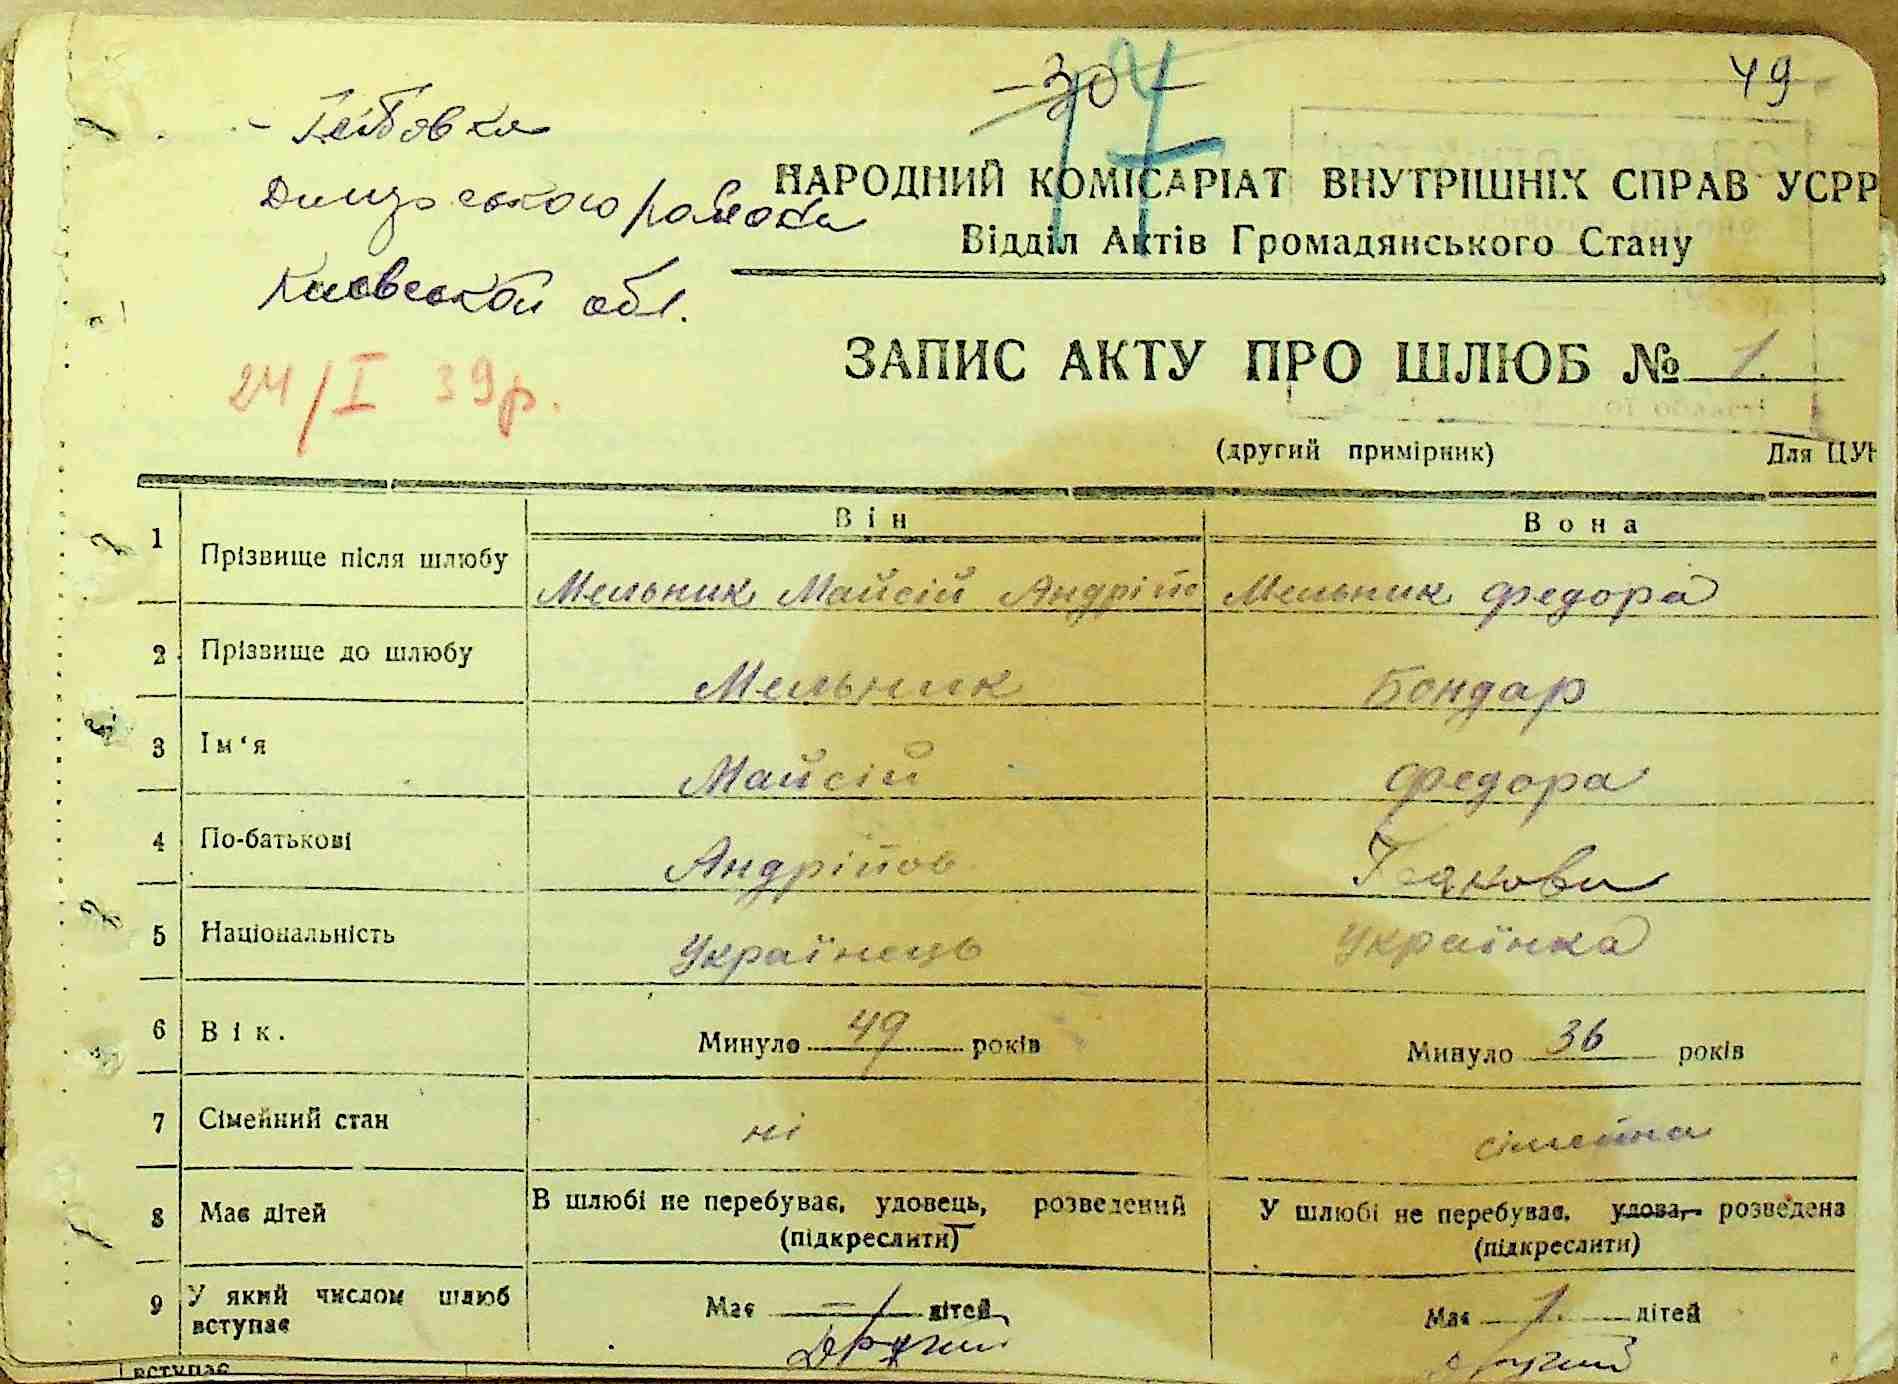 -30-
17
49
Димерського района
Киевской обл.
24/I 39р.
НАРОДНИЙ КОМІСАРІАТ ВНУТРІШНІХ СПРАВ УСРР
Відділ Актів Громадянського Стану
ЗАПИС АКТУ ПРО ШЛЮБ № 1.
(другий примірник) Для ЦУН
Він Вона
1 Прізвище після шлюбу Мельник Майсій Андрійо Мельник Федора
2 Прізвище до шлюбу Мельник Бондар
3 Ім'я Майсій Федора
4 По-батькові Андрійов
5 Національність Українець Українка
6 Вік. Минуло 49 років Минуло 36 років
7 Сімейний стан ні сімейна
8 Має дітей В шлюбі не перебуває, удовець, розведений У шлюбі не перебуває, удова, розведена
(підкреслити) (підкреслити)
9 У який числом шлюб Має -1 дітей Має 1. дітей
вступає другий другий
вступає